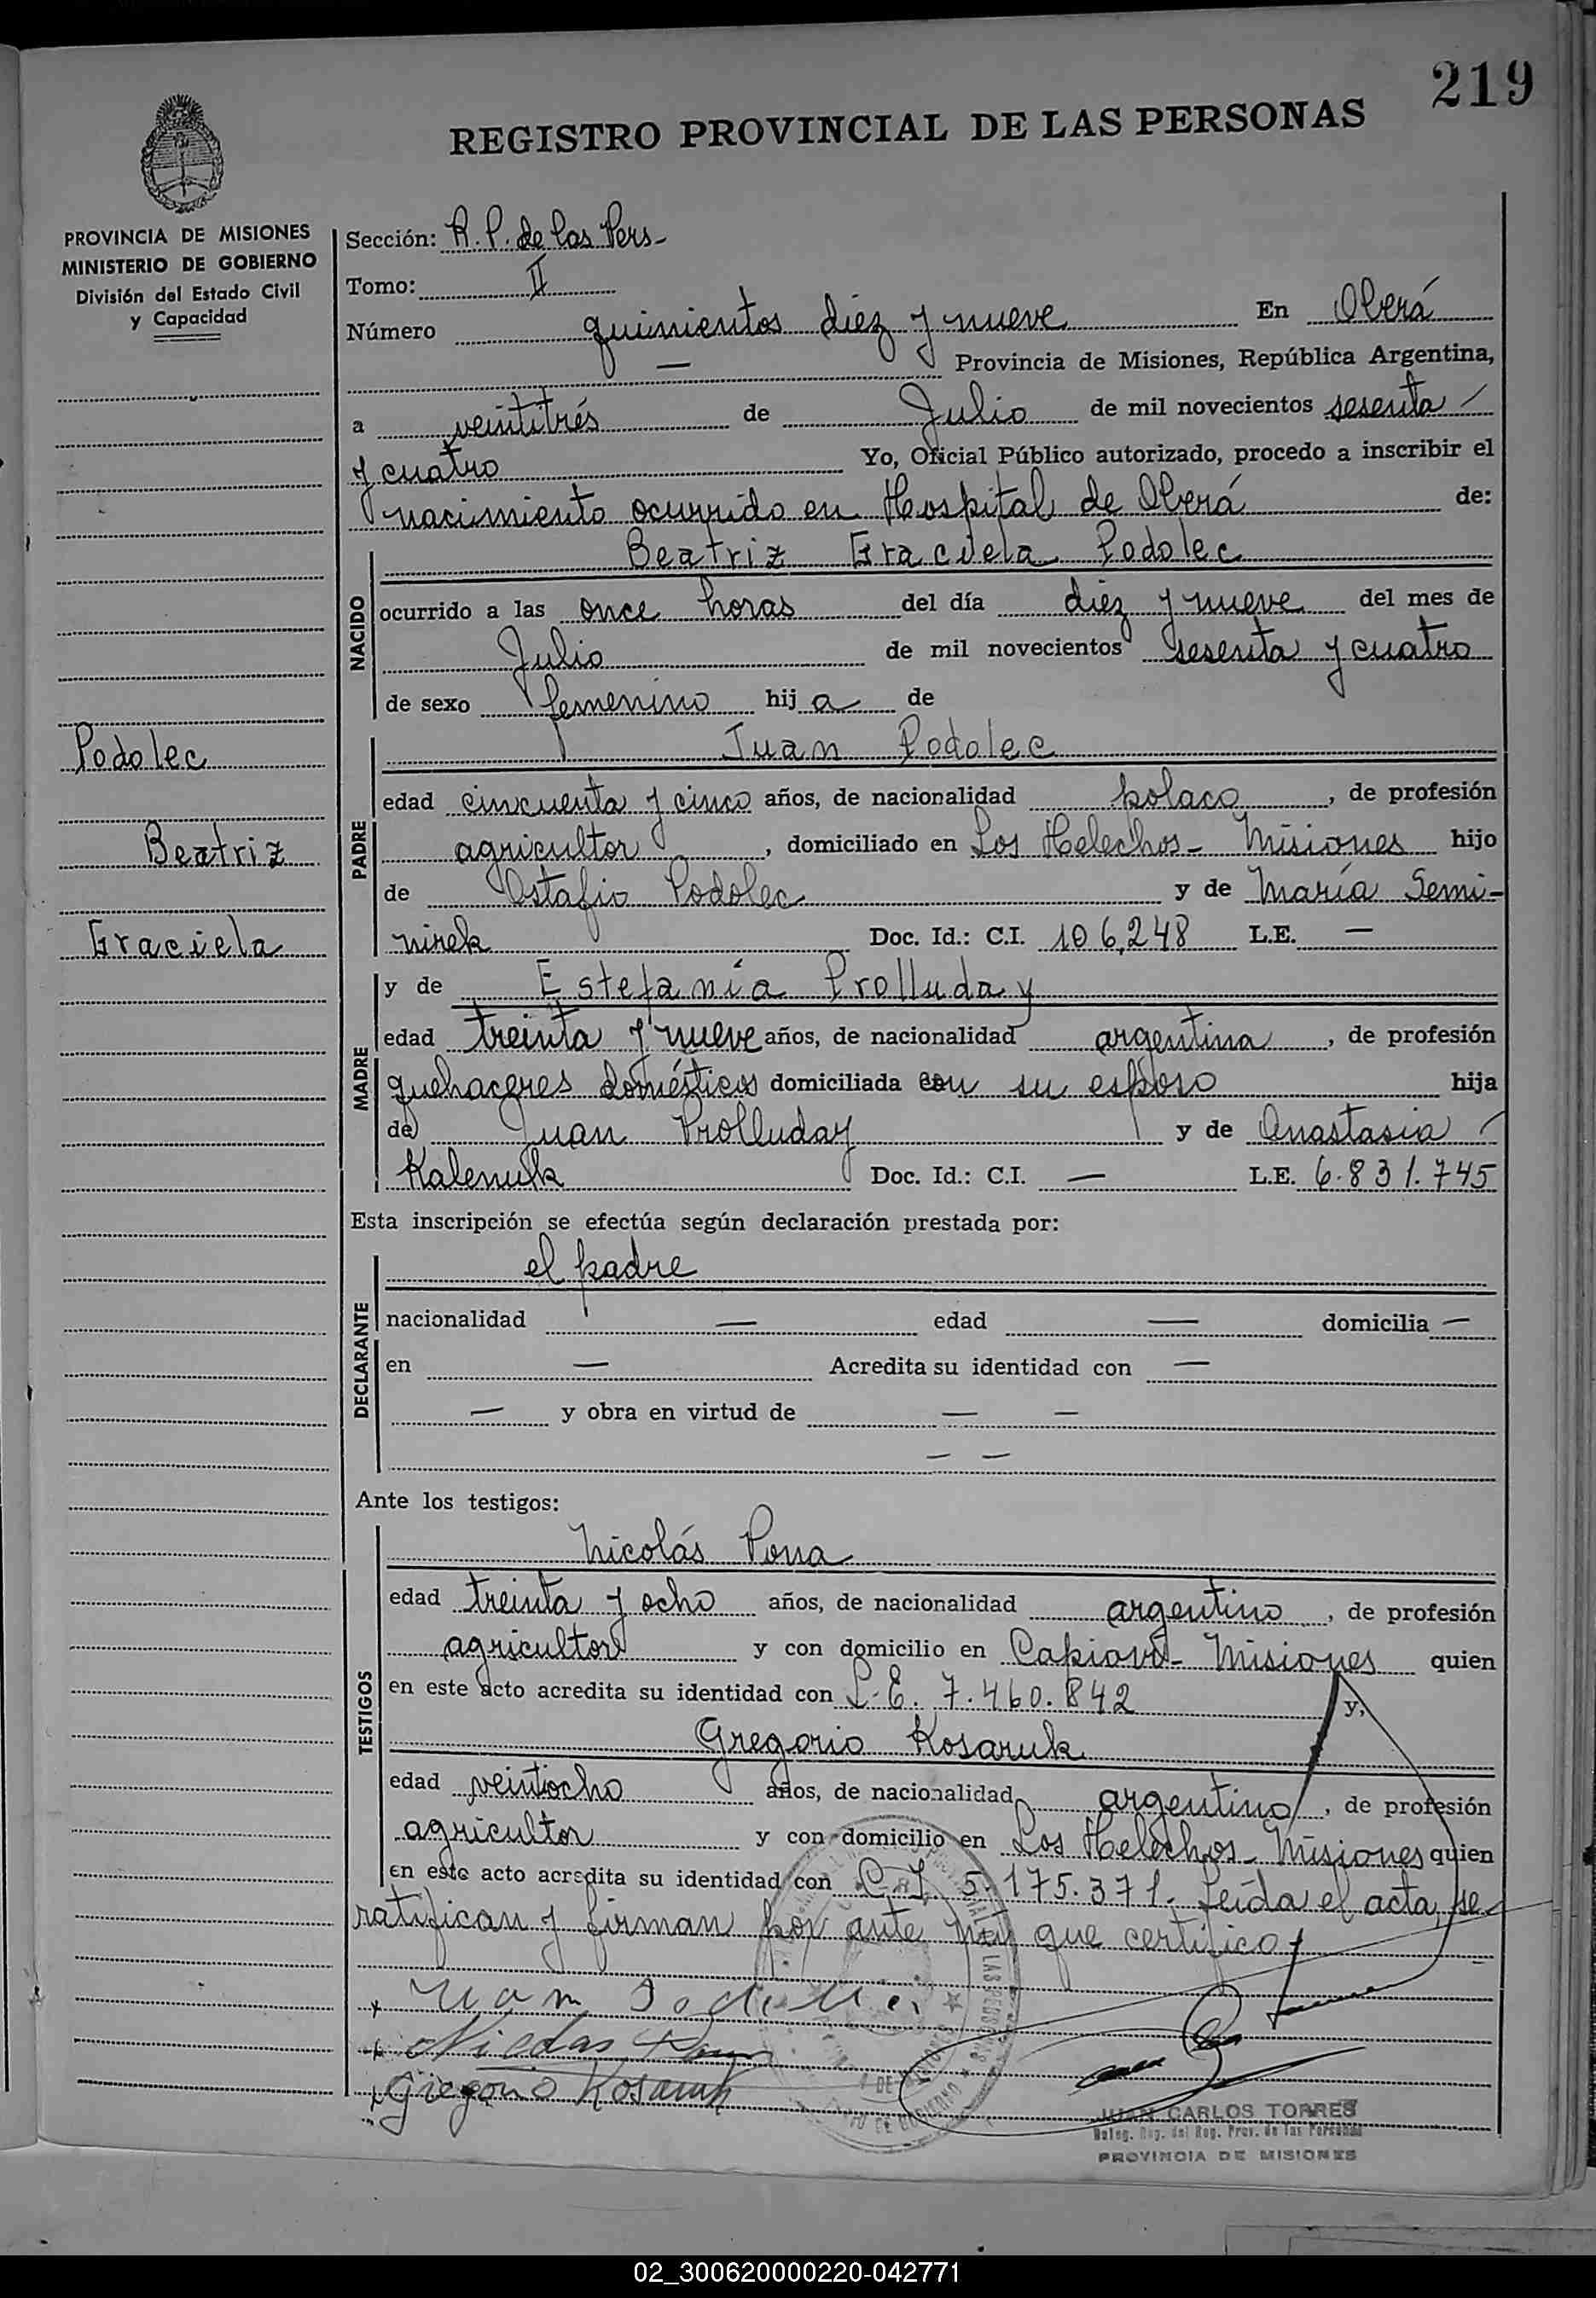 219
REGISTRO PROVINCIAL DE LAS PERSONAS
PROVINCIA DE MISIONES
MINISTERIO DE GOBIERNO
División del Estado Civil
y Capacidad
Podolec
Beatriz
Graciela
Sección: R. P. de las Pers-
Tomo: II
Número quinientos diez y nueve En Oberá
— Provincia de Misiones, República Argentina,
a veintitrés de Julio de mil novecientos sesenta
y cuatro Yo, Oficial Público autorizado, procedo a inscribir el
nacimiento ocurrido en Hospital de Oberá de:
NACIDO
Beatriz Graciela Podolec
ocurrido a las once horas del día diez y nueve del mes de
Julio de mil novecientos sesenta y cuatro
de sexo femenino hij a de
PADRE
Juan Podolec
edad cincuenta y cinco años, de nacionalidad polaco, de profesión
agricultor, domiciliado en Los Helechos- Misiones hijo
de Ostafio Podolec y de María Semi-
nirek Doc. Id.: C.I. 106,248 L.E. —
MADRE
y de Estefanía Prolluday
edad treinta y nueve años, de nacionalidad argentina, de profesión
quehaceres domésticos domiciliada con su esposo hija
de Juan Prolluday y de Anastasia
Kalenuk Doc. Id.: C.I. — L.E. 6.831.745
Esta inscripción se efectúa según declaración prestada por:
DECLARANTE
el padre
nacionalidad — edad — domicilia —
en — Acredita su identidad con —
— y obra en virtud de — —
— —
Ante los testigos:
TESTIGOS
Nicolás Pona
edad treinta y ocho años, de nacionalidad argentino, de profesión
agricultor y con domicilio en Capioví- Misiones quien
en este acto acredita su identidad con L.E. 7.460.842 y,
Gregorio Kosaruk
edad veintiocho años, de nacionalidad argentino, de profesión
agricultor y con domicilio en Los Helechos- Misiones quien
en este acto acredita su identidad con C.I. 5.175.371. Leída el acta, se
ratifican y firman por ante mí que certifico
x Nicolas
x Gregorio Kosaruk
JUAN CARLOS TORRES
Deleg. Reg. del Reg. Prov. de las Personas
PROVINCIA DE MISIONES
02_300620000220-042771